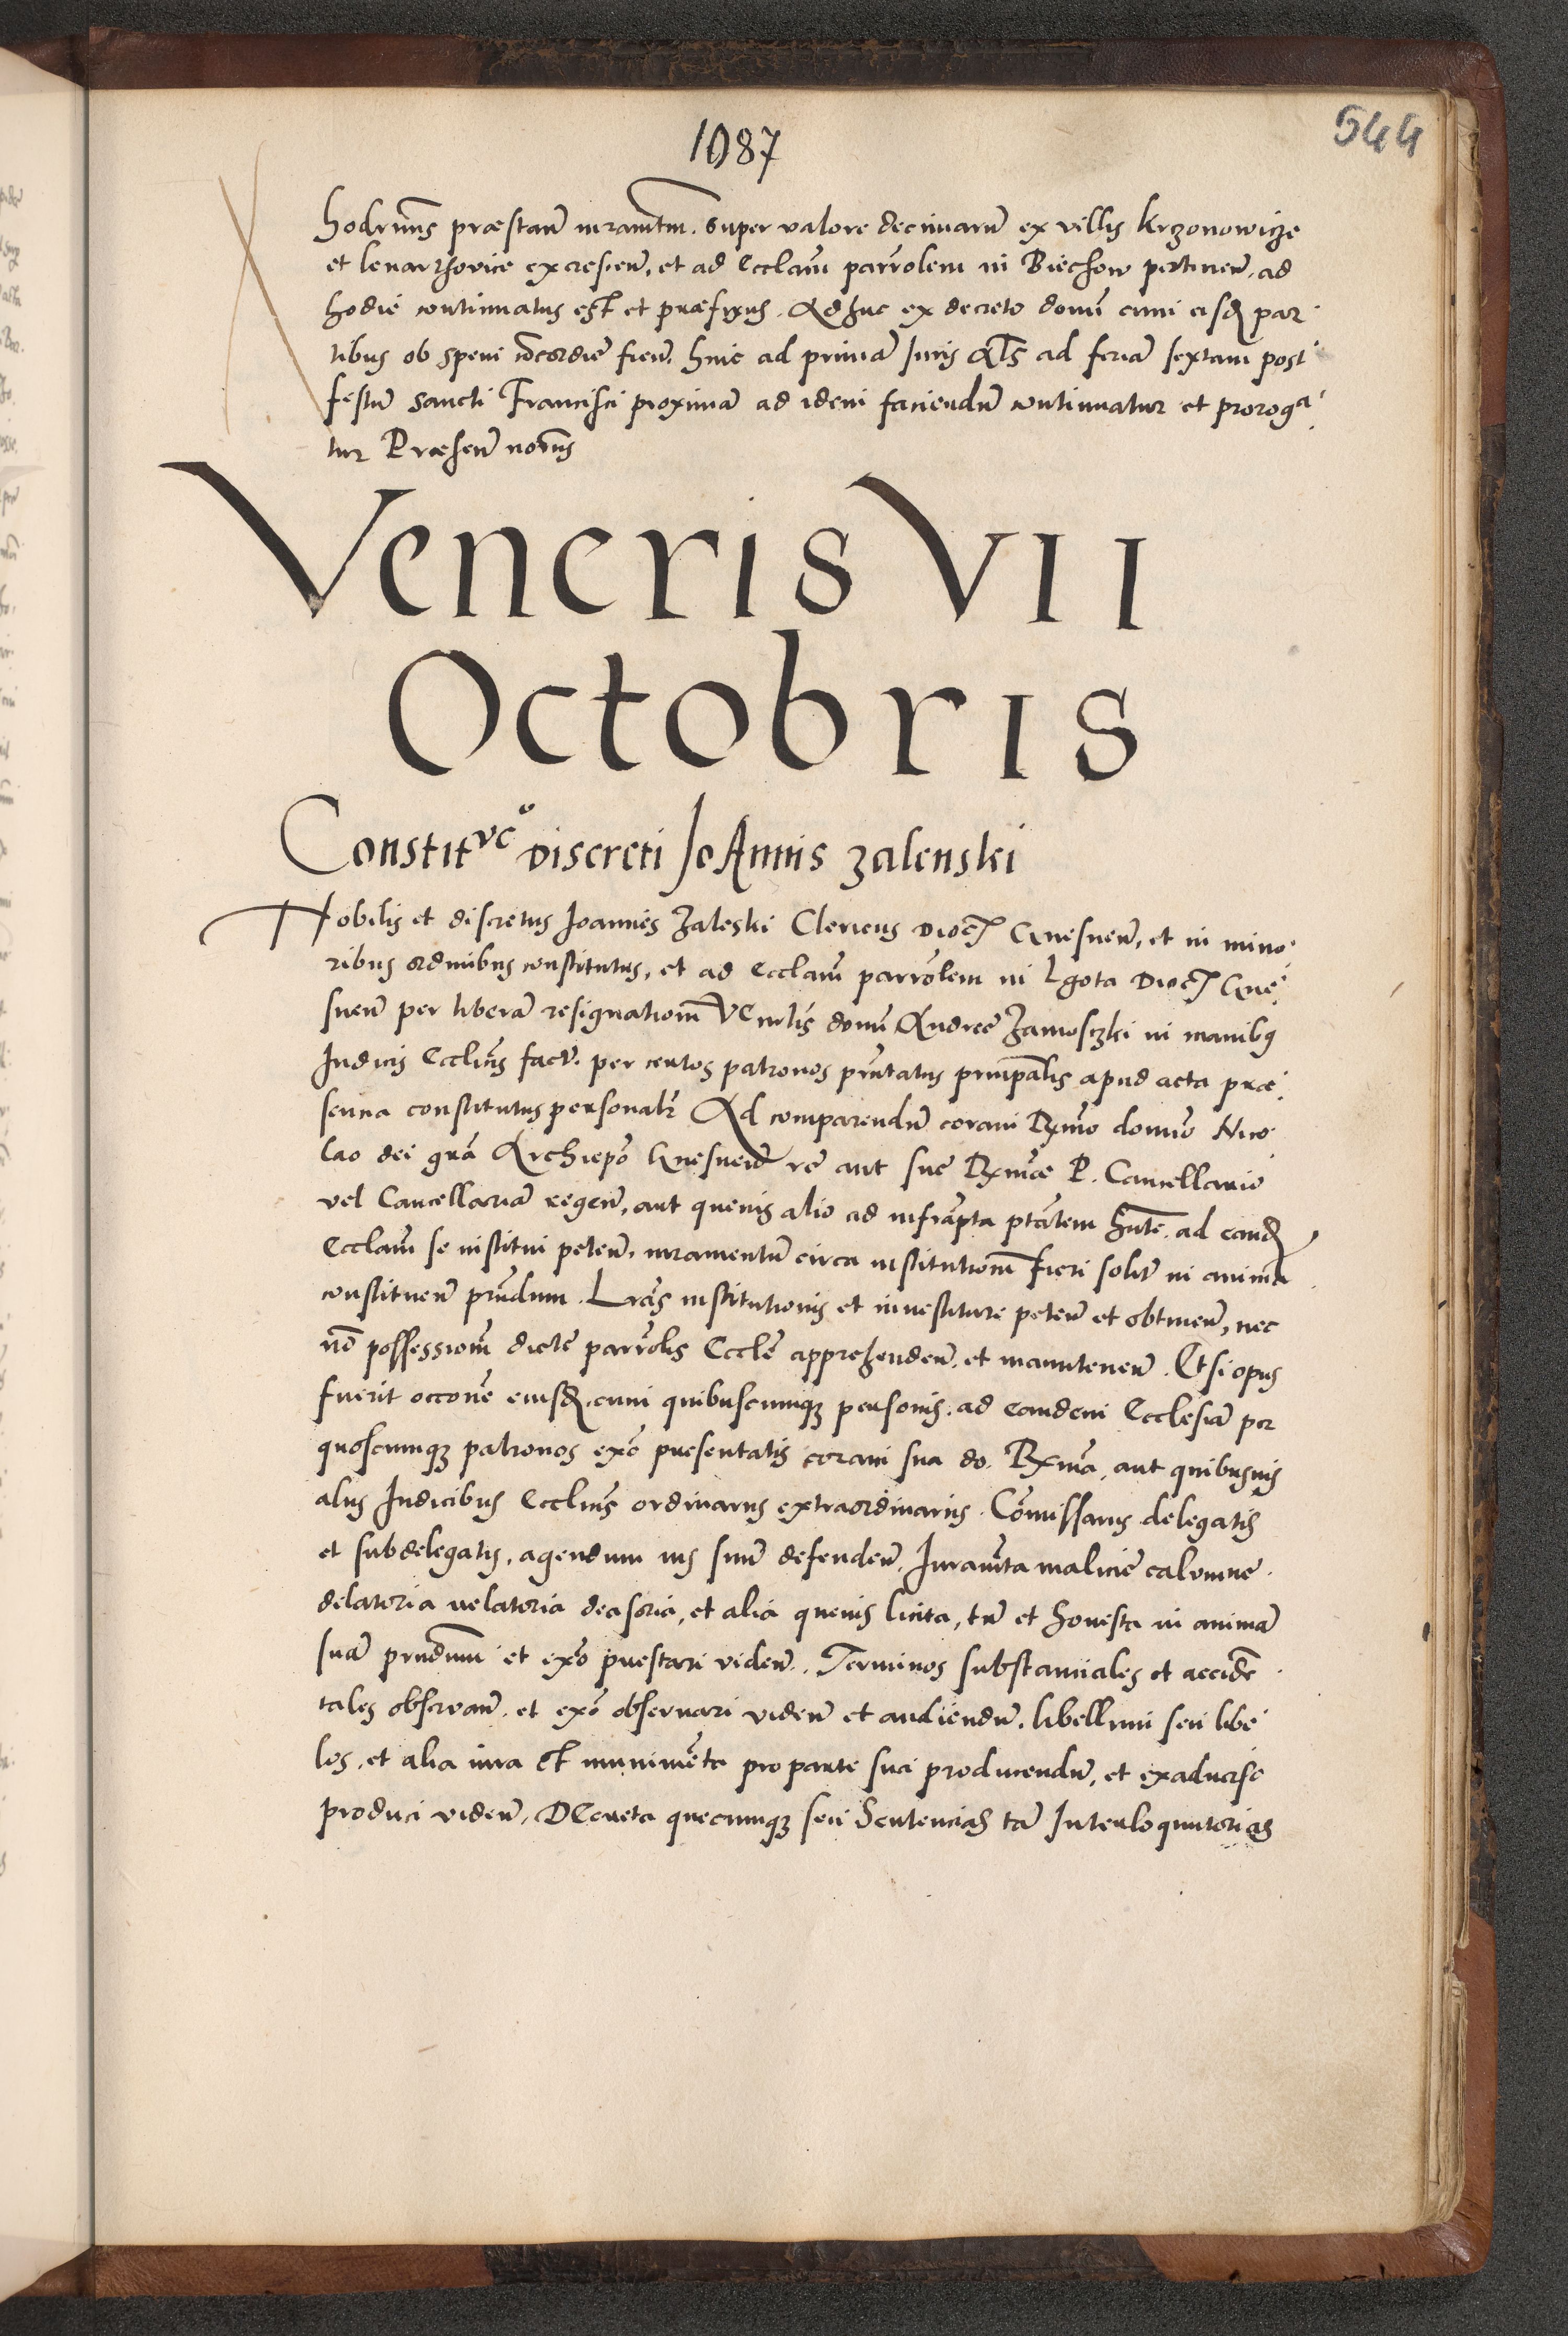 1087
544
hodiernus præstan̄ iuramtm̄. super valore decimarū ex villis Krzonowicze
et lenarthovice excrescen̄, et ad Eccl̄am parro͞lem in Biechow pertinen̄, ad
hodie continuatus est et præfixus. Adhuc ex decreto domi͞ cum eisd̄ par
tibus ob spem concordie fien̄. hinc ad primā Juris Al͞s ad feriā sextam post
festū sancti Francisci proximā ad idem faciendū continuatur et proroga
tur Præsen̄ no͞rus
Veneris VII
Octobris
Constitvc͞o discreti JoAnnis zalenski
Nobilis et discretus Joannes Zaleski Clericus Dioc̄ Gnesnen̄, et in mino
ribus ordinibus constitutus, et ad Eccl̄am parro͞lem in Lgota Dioc̄ Gne
snen̄ per liberā resignationem̄ Ve͞nlis domi͞ Andree Zamosczki in manibus
Judicis Eccl̄ici factā. per certos patronos prn͞tatus principalis apud acta præ
sencia constitutus personalr̄ Ad comparendū coram Rx͞mo domino Nico
lao dei gr͞a Archiepo͞ Gnesnen̄ re aut sue Rx͞mæ P. Cancellario
vel Cancellariā regen̄, aut quevis alio ad infra͞pta ptātem hn͞te. ad eand̄
Eccl̄am se institui peten̄, iuramentū circa institutionem̄ fieri solitū in anima
constituen̄ prn͞dum. Lr͞as institutionis et investiture peten̄ et obtinen̄, nec
no͞ possessionem̄ dicte parro͞lis Eccl̄e apprehenden̄. et manutenen̄. Et si opus
fuerit occo͞ne eiusd̄. cum quibuscumq; personis. ad eandem Ecclesiā per
quoscumq; patronos exo͞ presentatis coram sua do. Rx͞ma, aut quibusuis
alijs Judicibus Eccl̄icis ordinarijs extraordinarijs. Co͞missarijs delegatis
et subdelegatis, agendum ius suum defenden̄. Juram͞ta malicie calumnie.
delatoria uelatoria deasoria, et alia quevis licita, tn̄ et honesta in animā
suā prn͞dum et exo͞ prestari viden̄. Terminos substanciales et accide͞
tales observan̄. et exo͞ observari viden̄ et audiendū. libellum seu libe
los, et alia iura et munime͞ta pro parte sui producendū, et exaduerso
produci viden̄. Decreta quecumq; seu Sentencias tā Interloquutorias